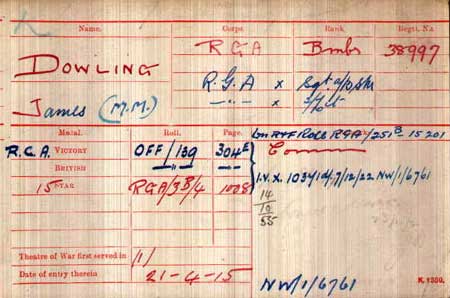 Name. Corps. Rank. Regtl. No.
DOWLING R G A Bmbr 38997
R.G.A x Sgt
James (M.M.) —"— x
Medal. Roll. Page.
R.G.A. VICTORY OFF/139 304E
BRITISH —"—
15 STAR RGA/3B/4 1008
Roll RGA/251B - 15201
I.V.X. 1034 7/12/22 NW/1/6761
14
10
55
Theatre of War first served in (1)
Date of entry therein 21-4-15
NW/1/6761
K. 1380.